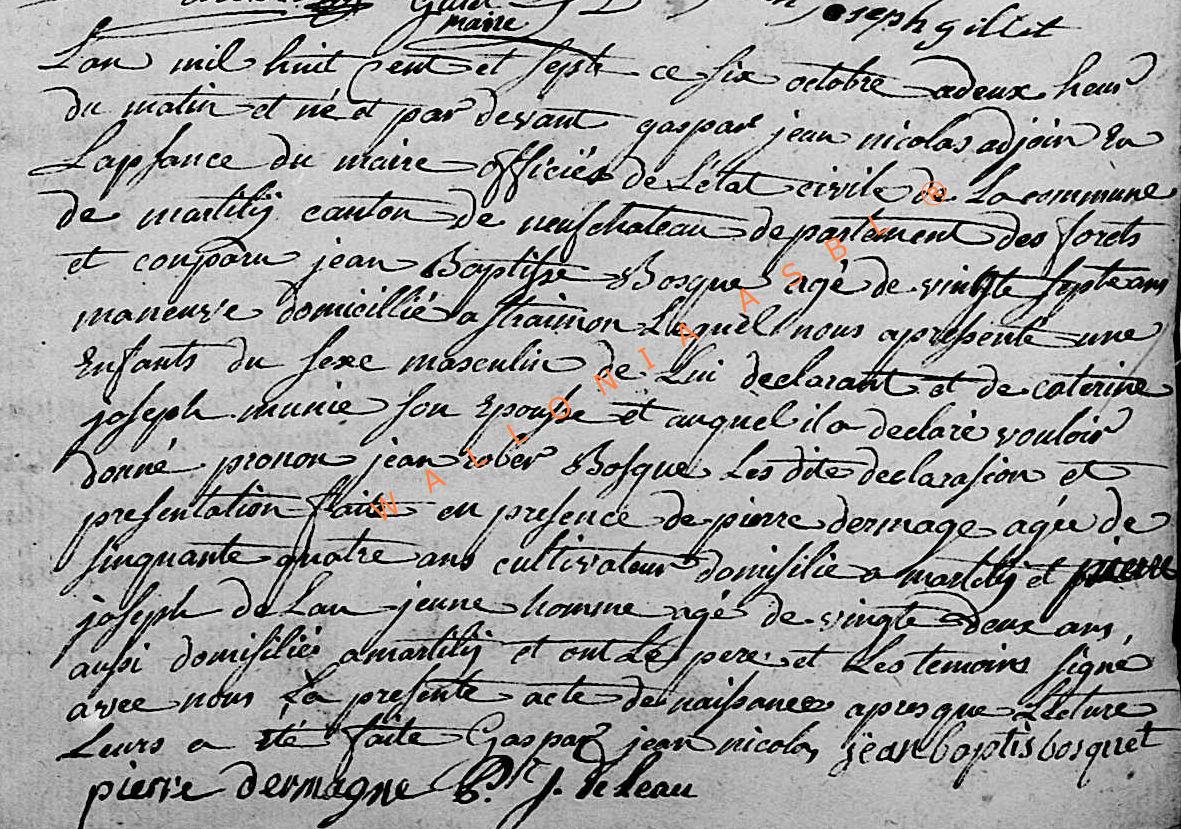 maire
joseph gillet
L'an mil huit cent et septe ce six octobre a deux heur
du matin et né et par devant gaspar jean nicolas adjoin en
Lapsance du maire officiés de L'état civile de La commune
de martilij canton de neufchateau departement des forets
et conparu jean Baptisse Bosque agé de vinste septe ans
maneuvre domicillié a straimon Lequel nous apresente une
Enfants du sexe masculin de Lui declarant et de caterine
joseph munie son Epouse et auquel il a declaré vouloir
donné pronon jean rober Bosque Les dite declarasion et
presentation fait en presence de pierre dermage agée de
sinquante quatre ans cultivateur domisilié a martilij et pierre
joseph de Lau jeune homme agé de vingte deux ans,
aussi domisilié a martilij et ont Le pere et Les temoins signé
avec nous La presente acte de naissances apres que Lecture
Leurs a été faite Gaspar jean nicolas jean baptis bosquet
pierre dermagne P.r J. deleau
WALLONIA ASBL ®